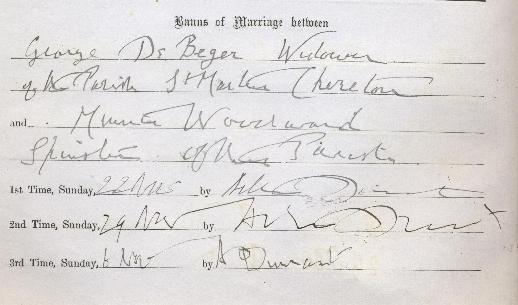 Banns of Marriage between
George De Beger Widower
of the Parish St Martin Chereton
and Minnie Woodward
Spinster of this Parish
1st Time, Sunday, 22 Nov by
2nd Time, Sunday, 29 Nov by
3rd Time, Sunday, 6 by A Durrant